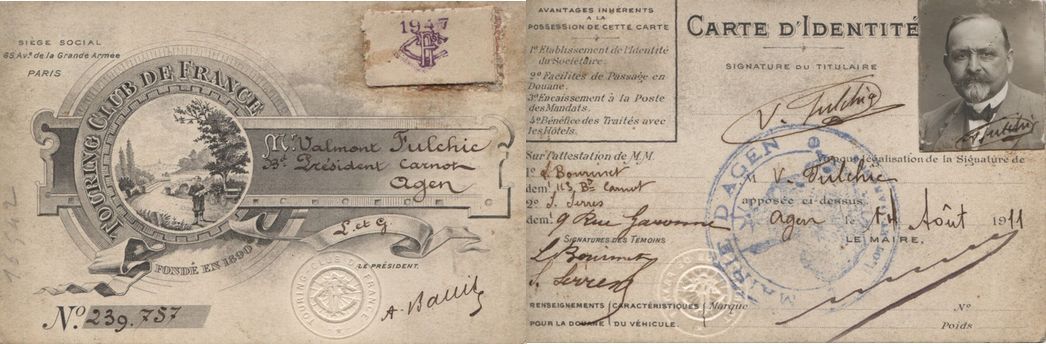 SIÈGE SOCIAL
65 Av.ᵉ de la Grande Armée
PARIS
TOURING CLUB DE FRANCE
FONDÉ EN 1890
Mʳ Valmont Fulchic
Bᵈ Président Carnot
Agen
L. et G
LE PRÉSIDENT.
Nº 239.757
TOURING CLUB DE FRANCE
AVANTAGES INHÉRENTS
A LA
POSSESSION DE CETTE CARTE
1º Etablissement de l'Identité
du Sociétaire.
2º Facilités de Passage en
Douane.
3º Encaissement à la Poste
des Mandats.
4º Bénéfice des Traités avec
les Hôtels.
CARTE D'IDENTITÉ
SIGNATURE DU TITULAIRE
V. Fulchic
Fulchic
Sur l'attestation de M.M.
1º
demᵗ 113 Bᵈ Carnot
2º J. Serres
demᵗ 9 Rue Garonne
SIGNATURES DES TEMOINS
J. Serres
pour légalisation de la Signature de
M V. Fulchic
apposée ci-dessus,
Agen le 14 Août 1911
LE MAIRE,
MAIRIE D'AGEN
RENSEIGNEMENTS CARACTÉRISTIQUES Marque Nº
POUR LA DOUANE DU VÉHICULE. Poids